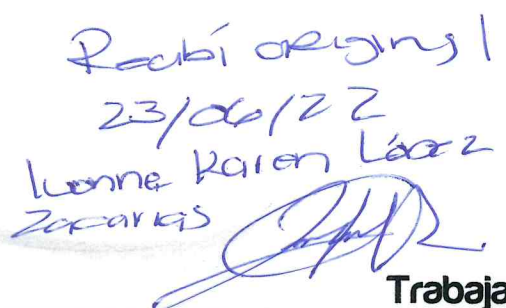 Recibí original
23/06/22
Ivonne Karen López
Zacarias
Trabaja